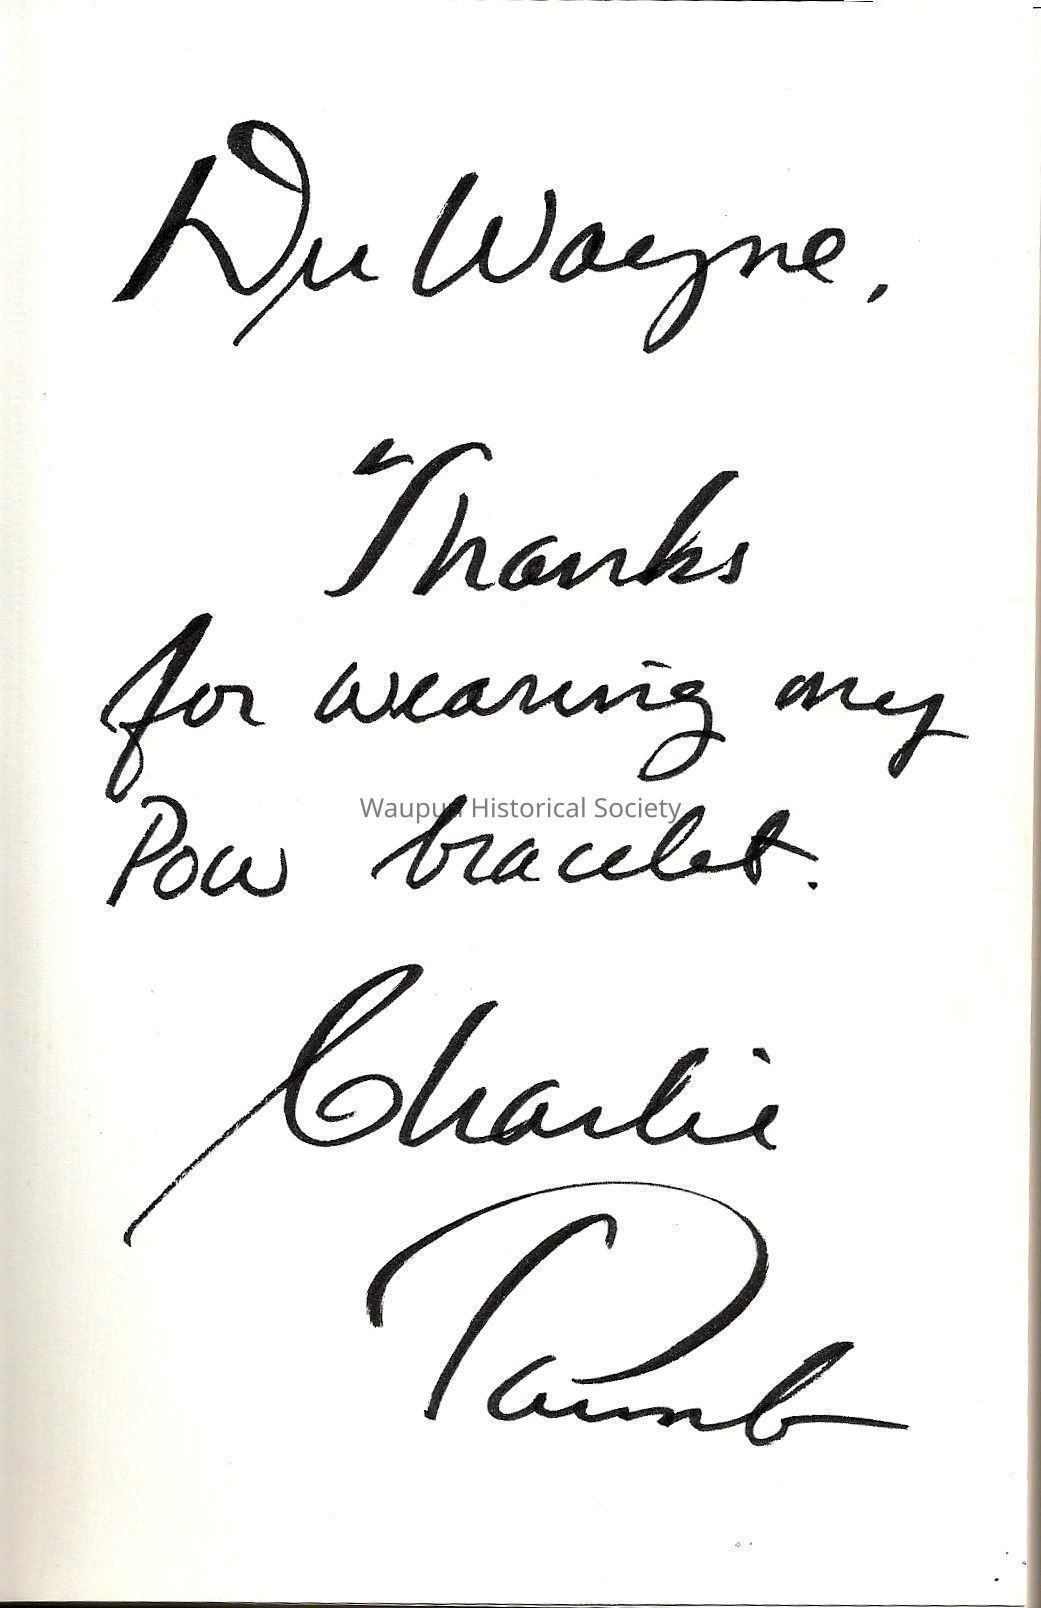 DuWayne,
Thanks
for wearing my
Waupun Historical Society
POW bracelet.
Charlie
Plumb